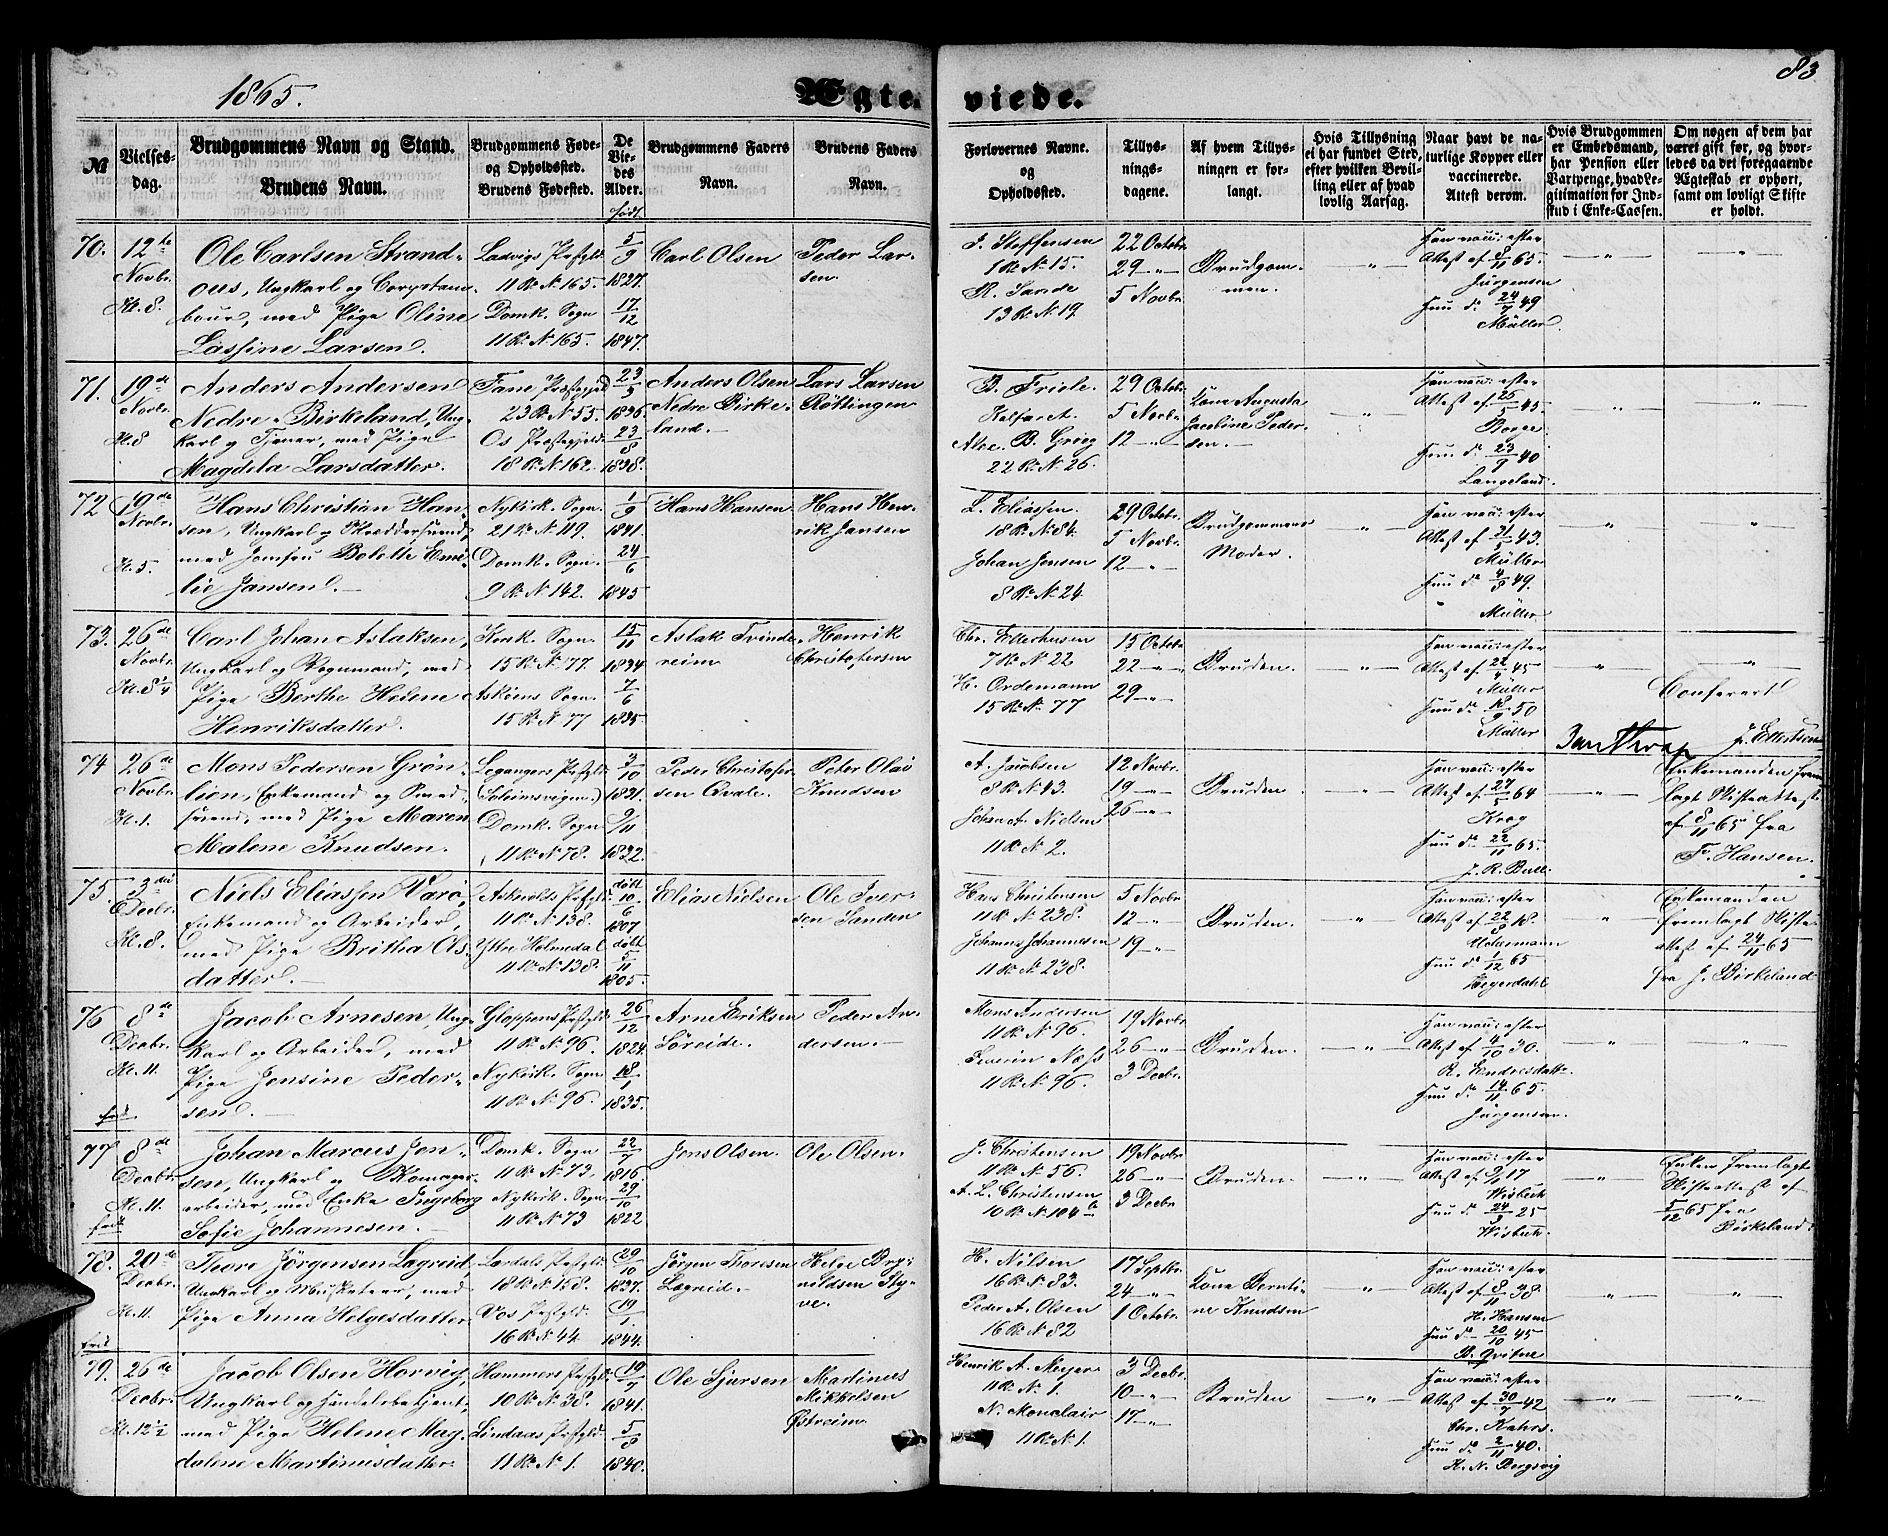 1865.
Ægte-
viede.
83
№
Vielses-
dag.
Brudgommens Navn og Stand.
Brudens Navn.
Brudgommens Føde-
og Opholdssted.
Brudens Fødested.
De
Vie-
des
Alder.
født
Brudgommens Faders
Navn.
Brudens Faders
Navn.
Forlovernes Navne.
og
Opholdssted.
Tillys-
nings-
dagene.
Af hvem Tillys-
ningen er for-
langt.
Hvis Tillysning
ei har fundet Sted,
efter hvilken Bevil-
ling eller af hvad
lovlig Aarsag.
Naar havt de na-
turlige Kopper eller
vaccinerede.
Attest derom.
Hvis Brudgommen
er Embedsmand,
har Pension eller
Vartpenge, hvad Le-
gitimation for Ind-
skud i Enke-Cassen.
Om nogen af dem har
været gift før, og hvor-
ledes da det foregaaende
Ægteskab er ophørt,
samt om lovligt Skifte
er holdt.
70.
12te
Novbr.
Kl. 8.
Ole Carlsen Strand-
ous, Ungkarl og Corpstam-
bour, med Pige Oline
Lassine Larsen.
Ladvigs Præstgjld
11 R. N. 165.
Domk. Sogn
11 R. N. 165.
5/9
1827.
17/12
1847.
Carl Olsen
Peder Lar-
sen
J. Steffensen
1 R. N. 15.
R. Sande
13 R. N. 19
22 Octobr.
29 -"-
5 Novbr.
Brudgom-
men.
-"-
Han vacc: efter
Attest af 8/11 65.
Jürgensen
Hun do 24/7 49
Müller.
-"-
-"-
71.
19de
Novbr.
Kl. 8
Anders Andersen
Nedre-Birkeland, Ung-
karl og Tjener, med Pige
Magdela Larsdatter.
Fane Præstegjeld
23 R. N. 55.
Os Præstegjeld.
18 R. N. 162.
23/3
1836.
23/8
1838.
Anders Olsen
Nedre Birke-
land.-
Lars Larsen
Röttingen
B. Friele.
Kalfaret.
Alex. B. Grieg
22 R. N. 26.
29 Octobr.
5 Novbr.
12 -"-
Kone Augusta
Jacobine Peder-
sen.-
"
Han vacc: efter
Attest af 25/5 45.
Hun do 23/9 40
Langeland.
-"-
"
72
19de
Novbr.
Kl. 5.
Hans Christian Han-
sen, Ungkarl og Skræddersvend,
med Jomfru Bolette Emi-
lie Jansen.-
Nykirk. Sogn.
21 R. N. 119.
Domk. Sogn.
9 R. N. 142.
1/9
1841.
24/6
1845
Hans Hansen
Hans Hen-
rik Jansen
L. Eliassen.
18 R. N. 84.
Johan Jensen
8 R. N. 24.
29 Octobr.
5 Novbr.
12 -"-
Brudgommens
Moder.
-"-
Han vacc: efter
Attest af 31/5 43.
Müller
Hun do 4/8 49.
Müller
"
"
73.
26de
Novbr.
Kl. 8 1/4
Carl Johan Aslaksen,
Ungkarl og Vognmand, med
Pige Berthe Helene
Henriksdatter.
Korsk. Sogn.
15 R. N. 77.
Askøens Sogn.
15 R. N. 77
15/11
1834
7/6
1835
Aslak Tvinde-
reim
Henrik
Christofersen
Chr. Ellerhusen
7 R. N. 22
H. Ordemann
15 R. N. 77
15 Octobr.
22 -"-
29 -"-
Bruden.
-"-
Han vacc: efter
Attest af 22/4 45
Müller
Hun do 18/9 50
Müller
"
-"-
Confereret
74
26de
Novbr.
Kl. 1.
Mons Pedersen Grön-
lien, Enkemand og Smed-
svend, med Pige Maren
Malene Knudsen.
Legangers Præstgjld
(Soleimsvigen)
Domk. Sogn
11 R. N. 78.
3/10
1821.
9/11
1832.
Peder Christofer-
sen Qvale.
Peter Olai
Knudsen
A. Jacobsen
8 R. N. 43.
Johan A. Nielsen
11 R. N. 2.
12 Novbr.
19 -"-
26 -"-
Bruden.
-"-
Han vacc: efter
Attest af 27/5 64
Krag
Hun do 22/11 65.
J. R. Bull.
-"-
Enkemanden frem-
lagt Skifteattest
af 8/11 65 fra
F. Hansen.
75.
3die
Decbr.
Kl. 8.
Niels Eliassen Varö,
Enkemand og Arbeider,
med Pige Britha Ols-
datter.-
Askvolds Præstgjld.
11 R. N. 138.
Yttre Holmedal
11 R. N. 138.
døbt
10/6
1807
døbt
5/11
1805.
Elias Nielsen
Ole Iver-
sen Sanden
Hans Christensen
11 R. N. 238.
Johannes Johannesen
11 R. N. 238.
5 Novbr.
12 -"-
19 -"-
Bruden.
-"-
Han vacc: efter
Attest af 22/8 18.
Uchermann
Hun do 1/12 65
Heyerdahl
"
Enkemanden
fremlagt Skifte-
attest af 24/11 65
fra J. Birkeland
76
8de
Decbr.
Kl. 11.
frit
Jacob Arnesen, Ung-
karl og Arbeider, med
Pige Jensine Peder-
sen.-
Gloppens Præstgjld
11 R. N. 96.
Nykirk. Sogn
11 R. N. 96.
26/12
1824.
18/1
1835.
Arne Eriksen
Söreide.
Peder An-
dersen.-
Mons Andersen
11 R. N. 96.
Severin Næss
11 R. N. 96.
19 Novbr.
26 -"-
3 Decbr.
Bruden.
-"-
Han vacc: efter
Attest af 4/10 30.
R. Endresdatt.
Hun do 14/11 65.
Jürgensen.
"
-"-
77
8de
Decbr.
Kl. 11.
frit
Johan Marcus Jen-
sen, Ungkarl og Skomager-
arbeider, med Enke Ingeborg
Sofie Johannesen.-
Domk. Sogn
11 R. N. 73.
Nykirk. Sogn
11 R. N. 73
22/7
1816.
29/10
1822.
Jens Olsen.
Ole Olsen.
J. Christensen
11 R. N. 56.
A. L. Christensen
10 R. N. 104 b
19 Novbr.
26 -"-
3 Decbr.
Bruden.
-"-
Han vacc: efter
Wisbech
Hun do 24/9 25
Wisbech.
-"-
Enken fremlagt
Skifteattest af
5/12 65 fra
Birkeland.
78.
20de
Decbr.
Kl. 11.
frit
Thore Jörgensen Lagreid,
Ungkarl og Musketeer, med
Pige Anna Helgesdatter
Lærdals Præstgjld.
18 R. N. 158.
Vos Præstgjld.
16 R. N. 44.
29/10
1837.
19/1
1844.
Jörgen Thoresen
Lagreid.-
Helge Bry-
nildsen Sty-
ve.
H. Nilsen
16 R. N. 83.
Peder A. Olsen
16 R. N. 82
17 Septbr.
24 -"-
1 Octobr.
Kone Bernti-
ne Knudsen
-"-
Han vacc: efter
Attest af 8/11 38.
H. Hansen
Hun do 20/10 45
B. Qvitne
"
"
79.
26de
Decbr.
Kl. 12 1/2
Jacob Olsen Horvig,
Ungkarl og Handelsbetjent,
med Pige Helene Mag-
dalene Martinusdatter
Hammers Præstgjld
10 R. N. 38.
Lindaas Præstgjld.
11 R. N. 1.
19/7
1841.
5/8
1840.
Ole Sjursen
Martinus
Mikkelsen
Østreim
Henrik A. Meyer
11 R. N. 1.
N. Monclair
11 R. N. 1.
3 Decbr.
10 -"-
17 -"-
Bruden
-"-
Han vacc: efter
Attest af 30/7 42
Chr. Kahrs.
Hun do 2/11 40.
K. N. Bergsvig
-"-
"